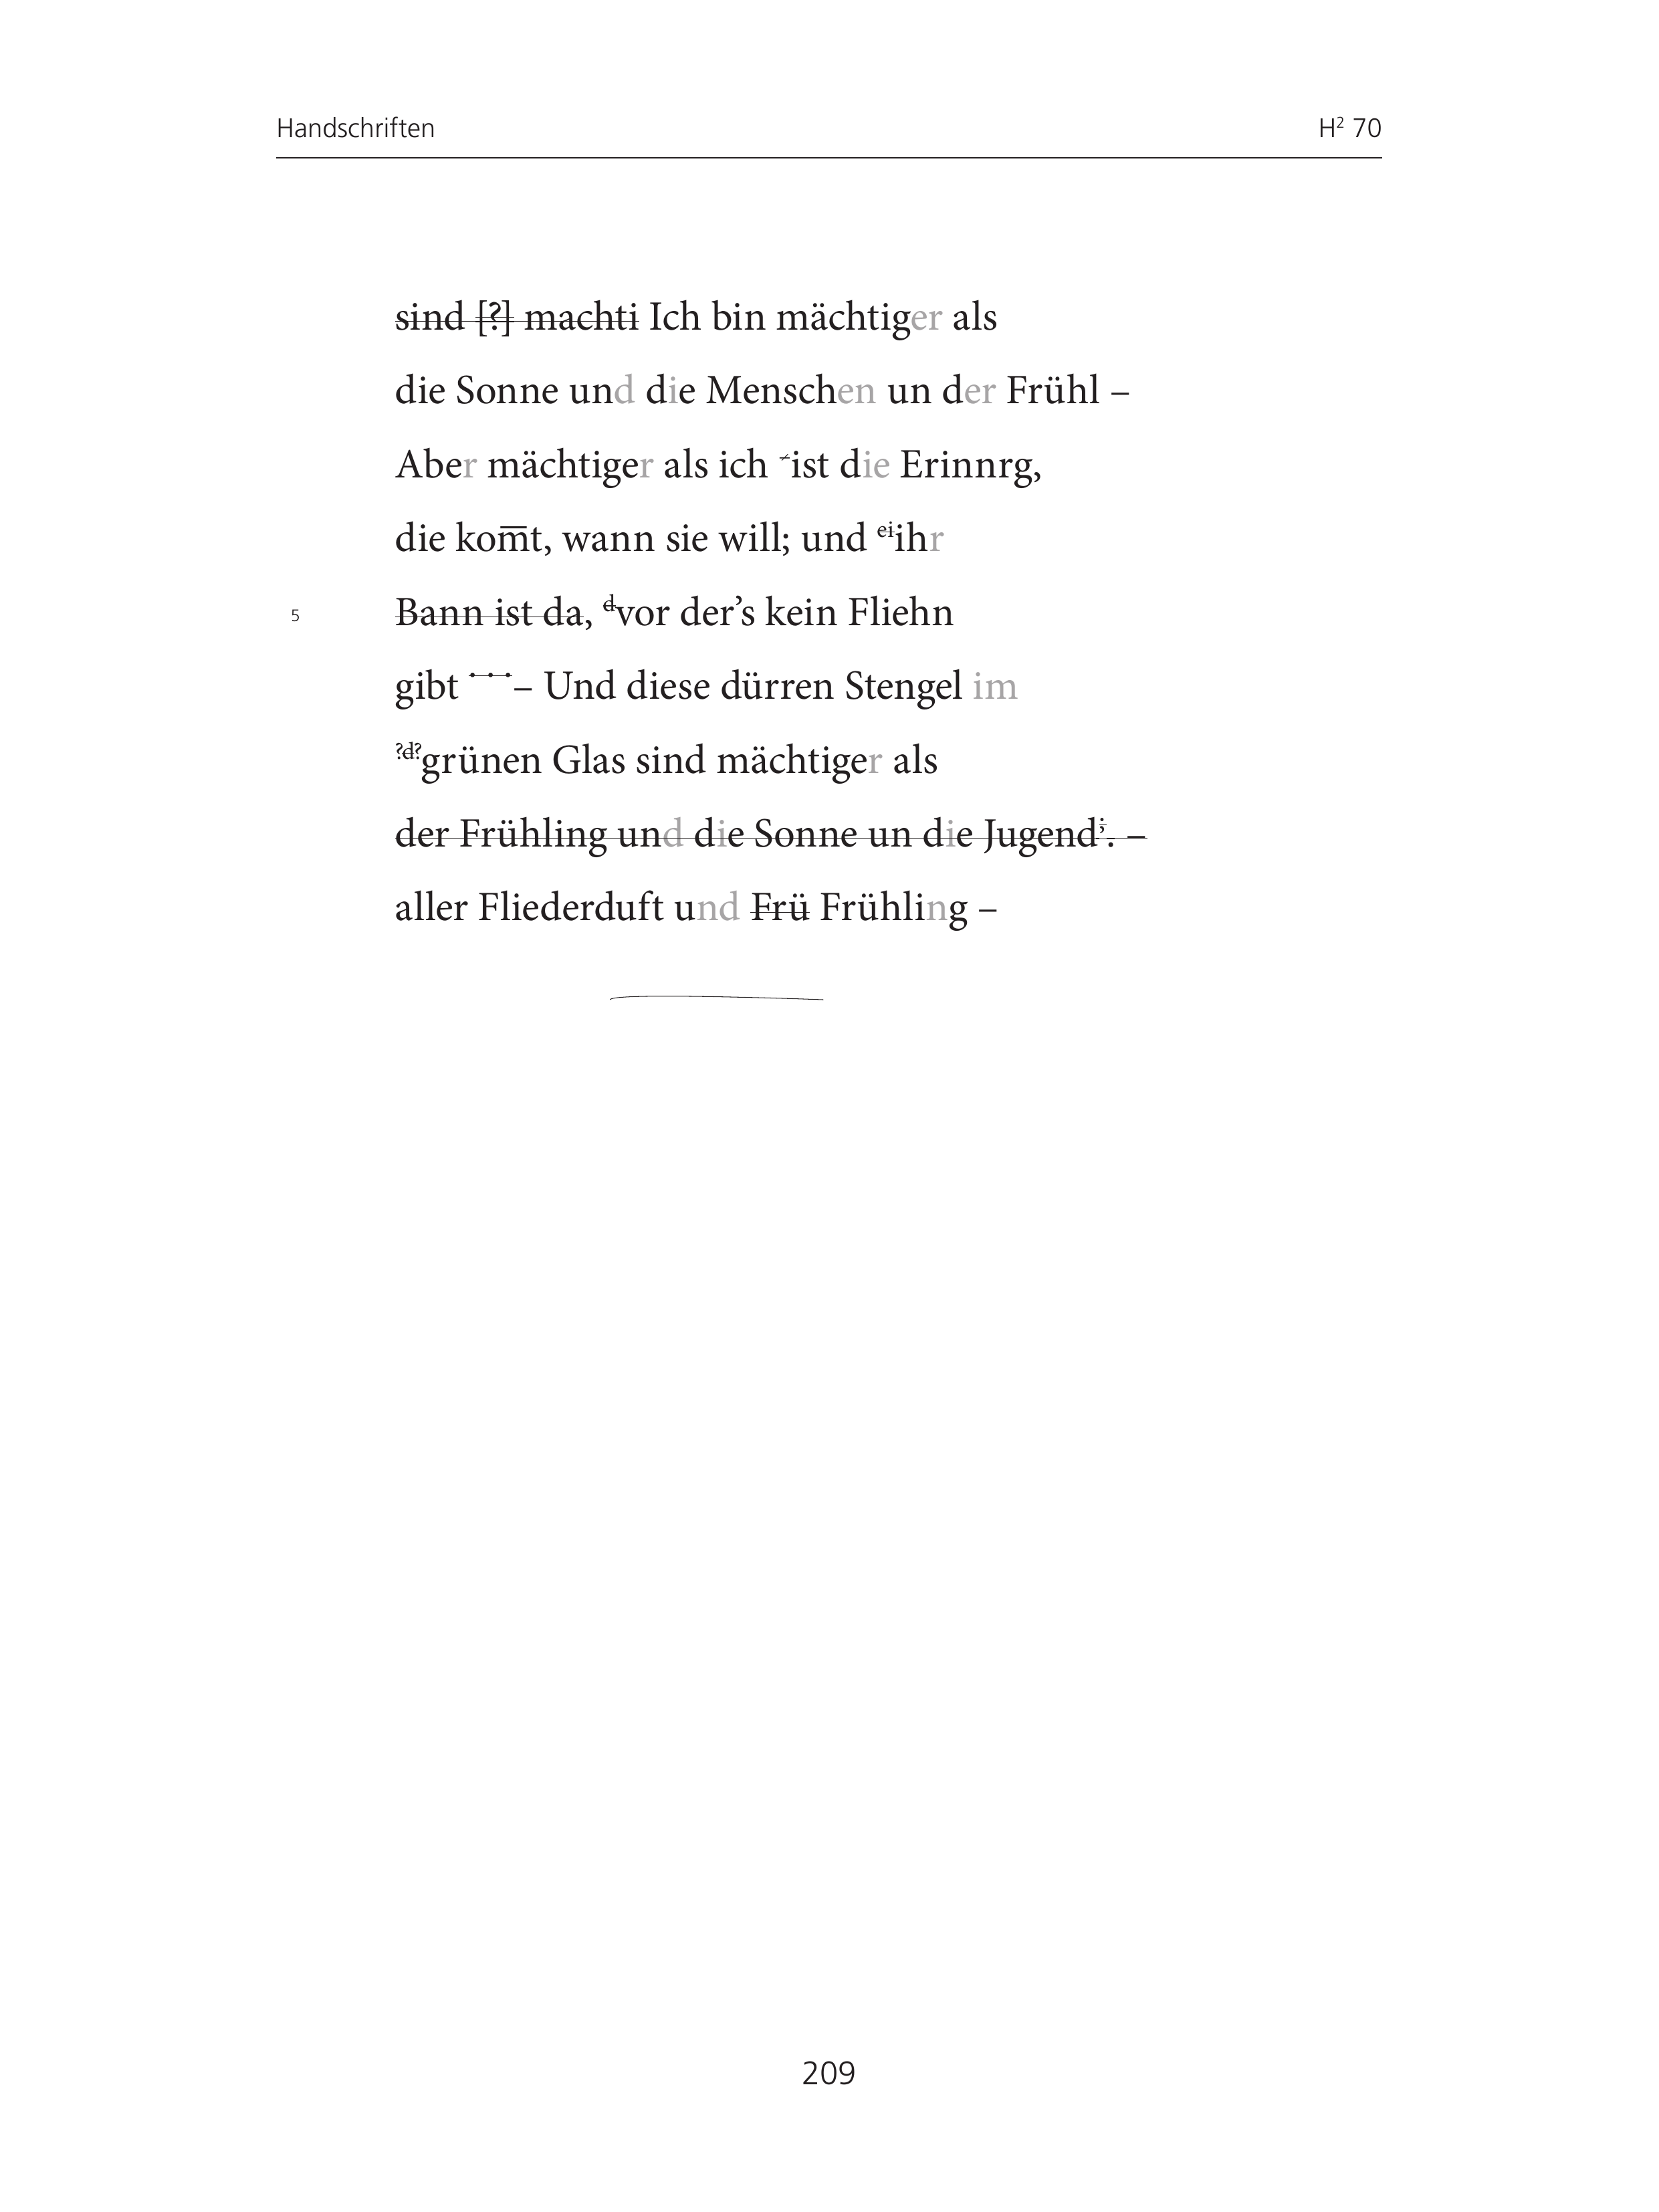 Handschriften H² 70
sind [?] machti Ich bin mächtiger als
die Sonne und die Menschen un der Frühl –
Aber mächtiger als ich -ist die Erinnrg,
die kom̅t, wann sie will; und eiihr
5 Bann ist da, dvor der’s kein Fliehn
gibt · · · – Und diese dürren Stengel im
?d?grünen Glas sind mächtiger als
der Frühling und die Sonne un die Jugend;. –
aller Fliederduft und Frü Frühling –
209